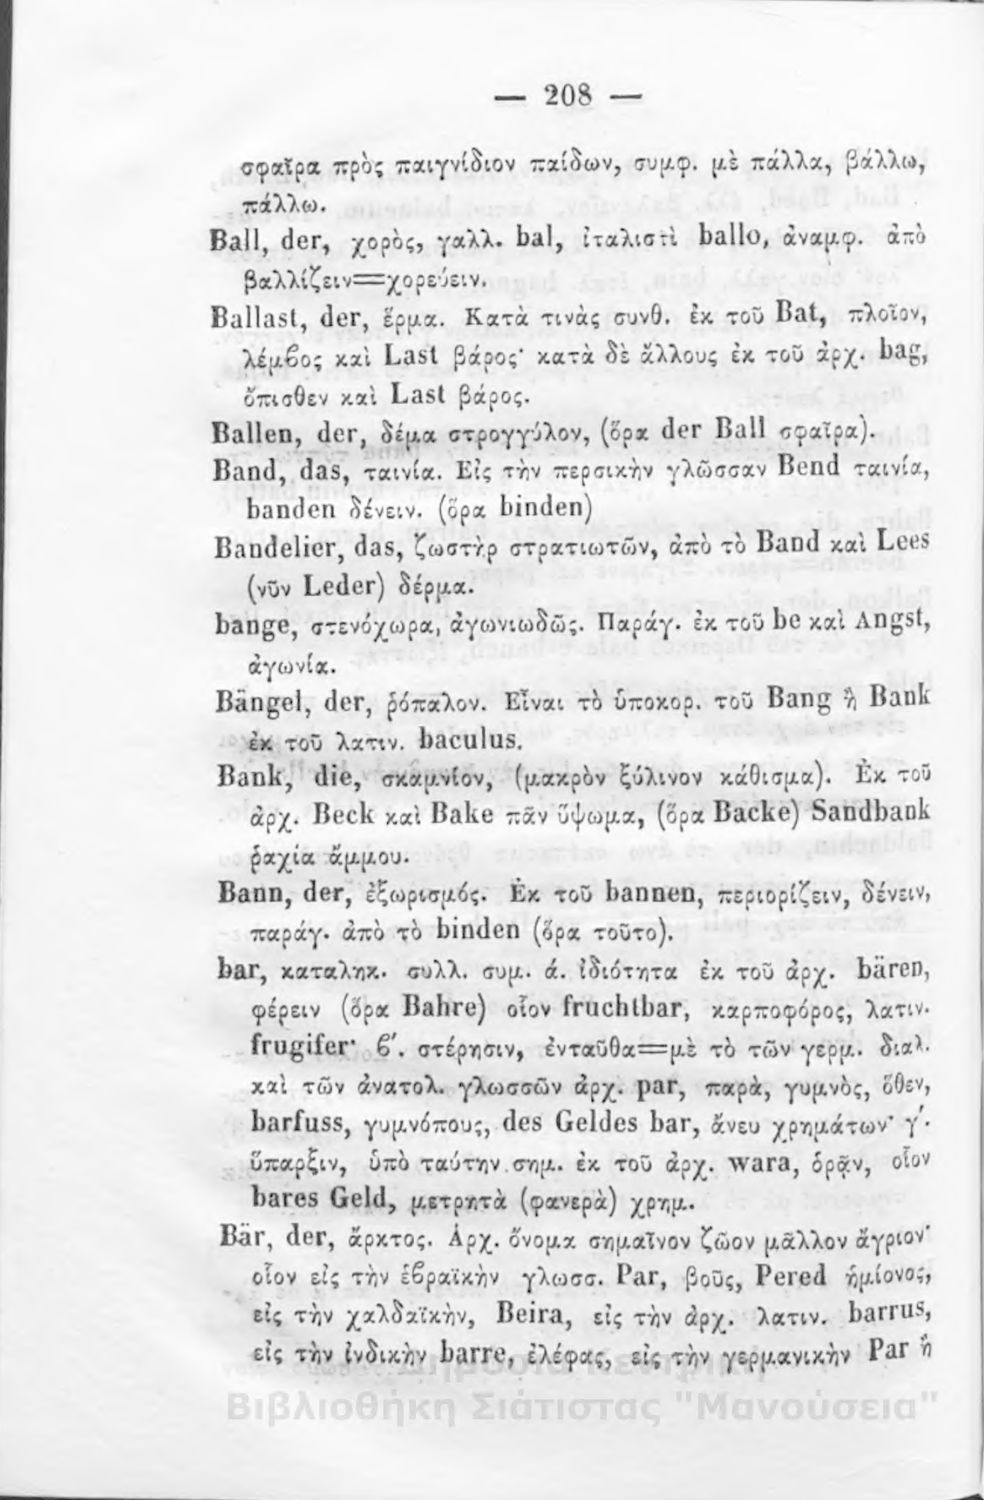 — 208 —
σφαῖρα πρὸς παιγνίδιον παίδων, συμφ. μὲ πάλλα, βάλλω,
πάλλω.
Ball, der, χορὸς, γαλλ. bal, ἰταλιστὶ ballo, ἀναμφ. ἀπὸ
βαλλίζειν=χορεύειν.
Ballast, der, ἕρμα. Κατὰ τινὰς συνθ. ἐκ τοῦ Bat, πλοῖον,
λέμϐος καὶ Last βάρος· κατὰ δὲ ἄλλους ἐκ τοῦ ἀρχ. bag,
ὄπισθεν καὶ Last βάρος.
Ballen, der, δέμα στρογγύλον, (ὅρα der Ball σφαῖρα).
Band, das, ταινία. Εἰς τὴν περσικὴν γλῶσσαν Bend ταινία,
banden δένειν. (ὅρα binden)
Bandelier, das, ζωστὴρ στρατιωτῶν, ἀπὸ τὸ Band καὶ Lees
(νῦν Leder) δέρμα.
bange, στενόχωρα, ἀγωνιωδῶς. Παράγ. ἐκ τοῦ be καὶ Angst,
ἀγωνία.
Bängel, der, ῥόπαλον. Εἶναι τὸ ὑποκορ. τοῦ Bang ἢ Bank
ἐκ τοῦ λατιν. baculus.
Bank, die, σκαμνίον, (μακρὸν ξύλινον κάθισμα). Ἐκ τοῦ
ἀρχ. Beck καὶ Bake πᾶν ὕψωμα, (ὅρα Backe) Sandbank
ῥαχία ἄμμου.
Bann, der, ἐξωρισμός. Ἐκ τοῦ bannen, περιορίζειν, δένειν,
παράγ. ἀπὸ τὸ binden (ὅρα τοῦτο).
bar, καταληκ. συλλ. συμ. ά. ἰδιότητα ἐκ τοῦ ἀρχ. bären,
φέρειν (ὅρα Bahre) οἷον fruchtbar, καρποφόρος, λατιν.
frugifer· ϐ'. στέρησιν, ἐνταῦθα=μὲ τὸ τῶν γερμ. διαλ.
καὶ τῶν ἀνατολ. γλωσσῶν ἀρχ. par, παρὰ, γυμνὸς, ὅθεν,
barfuss, γυμνόπους, des Geldes bar, ἄνευ χρημάτων· γ'.
ὕπαρξιν, ὑπὸ ταύτην σημ. ἐκ τοῦ ἀρχ. wara, ὁρᾷν, οἷον
bares Geld, μετρητὰ (φανερὰ) χρημ.
Bär, der, ἄρκτος. Ἀρχ. ὄνομα σημαῖνον ζῶον μᾶλλον ἄγριον·
οἷον εἰς τὴν ἑϐραϊκὴν γλωσσ. Par, βοῦς, Pered ἡμίονος,
εἰς τὴν χαλδαϊκὴν, Beira, εἰς τὴν ἀρχ. λατιν. barrus,
εἰς τὴν ἰνδικὴν barre, ἐλέφας, εἰς τὴν γερμανικὴν Par ἢ
Δημόσια Κεντρική
Βιβλιοθήκη Σιάτιστας "Μανούσεια"